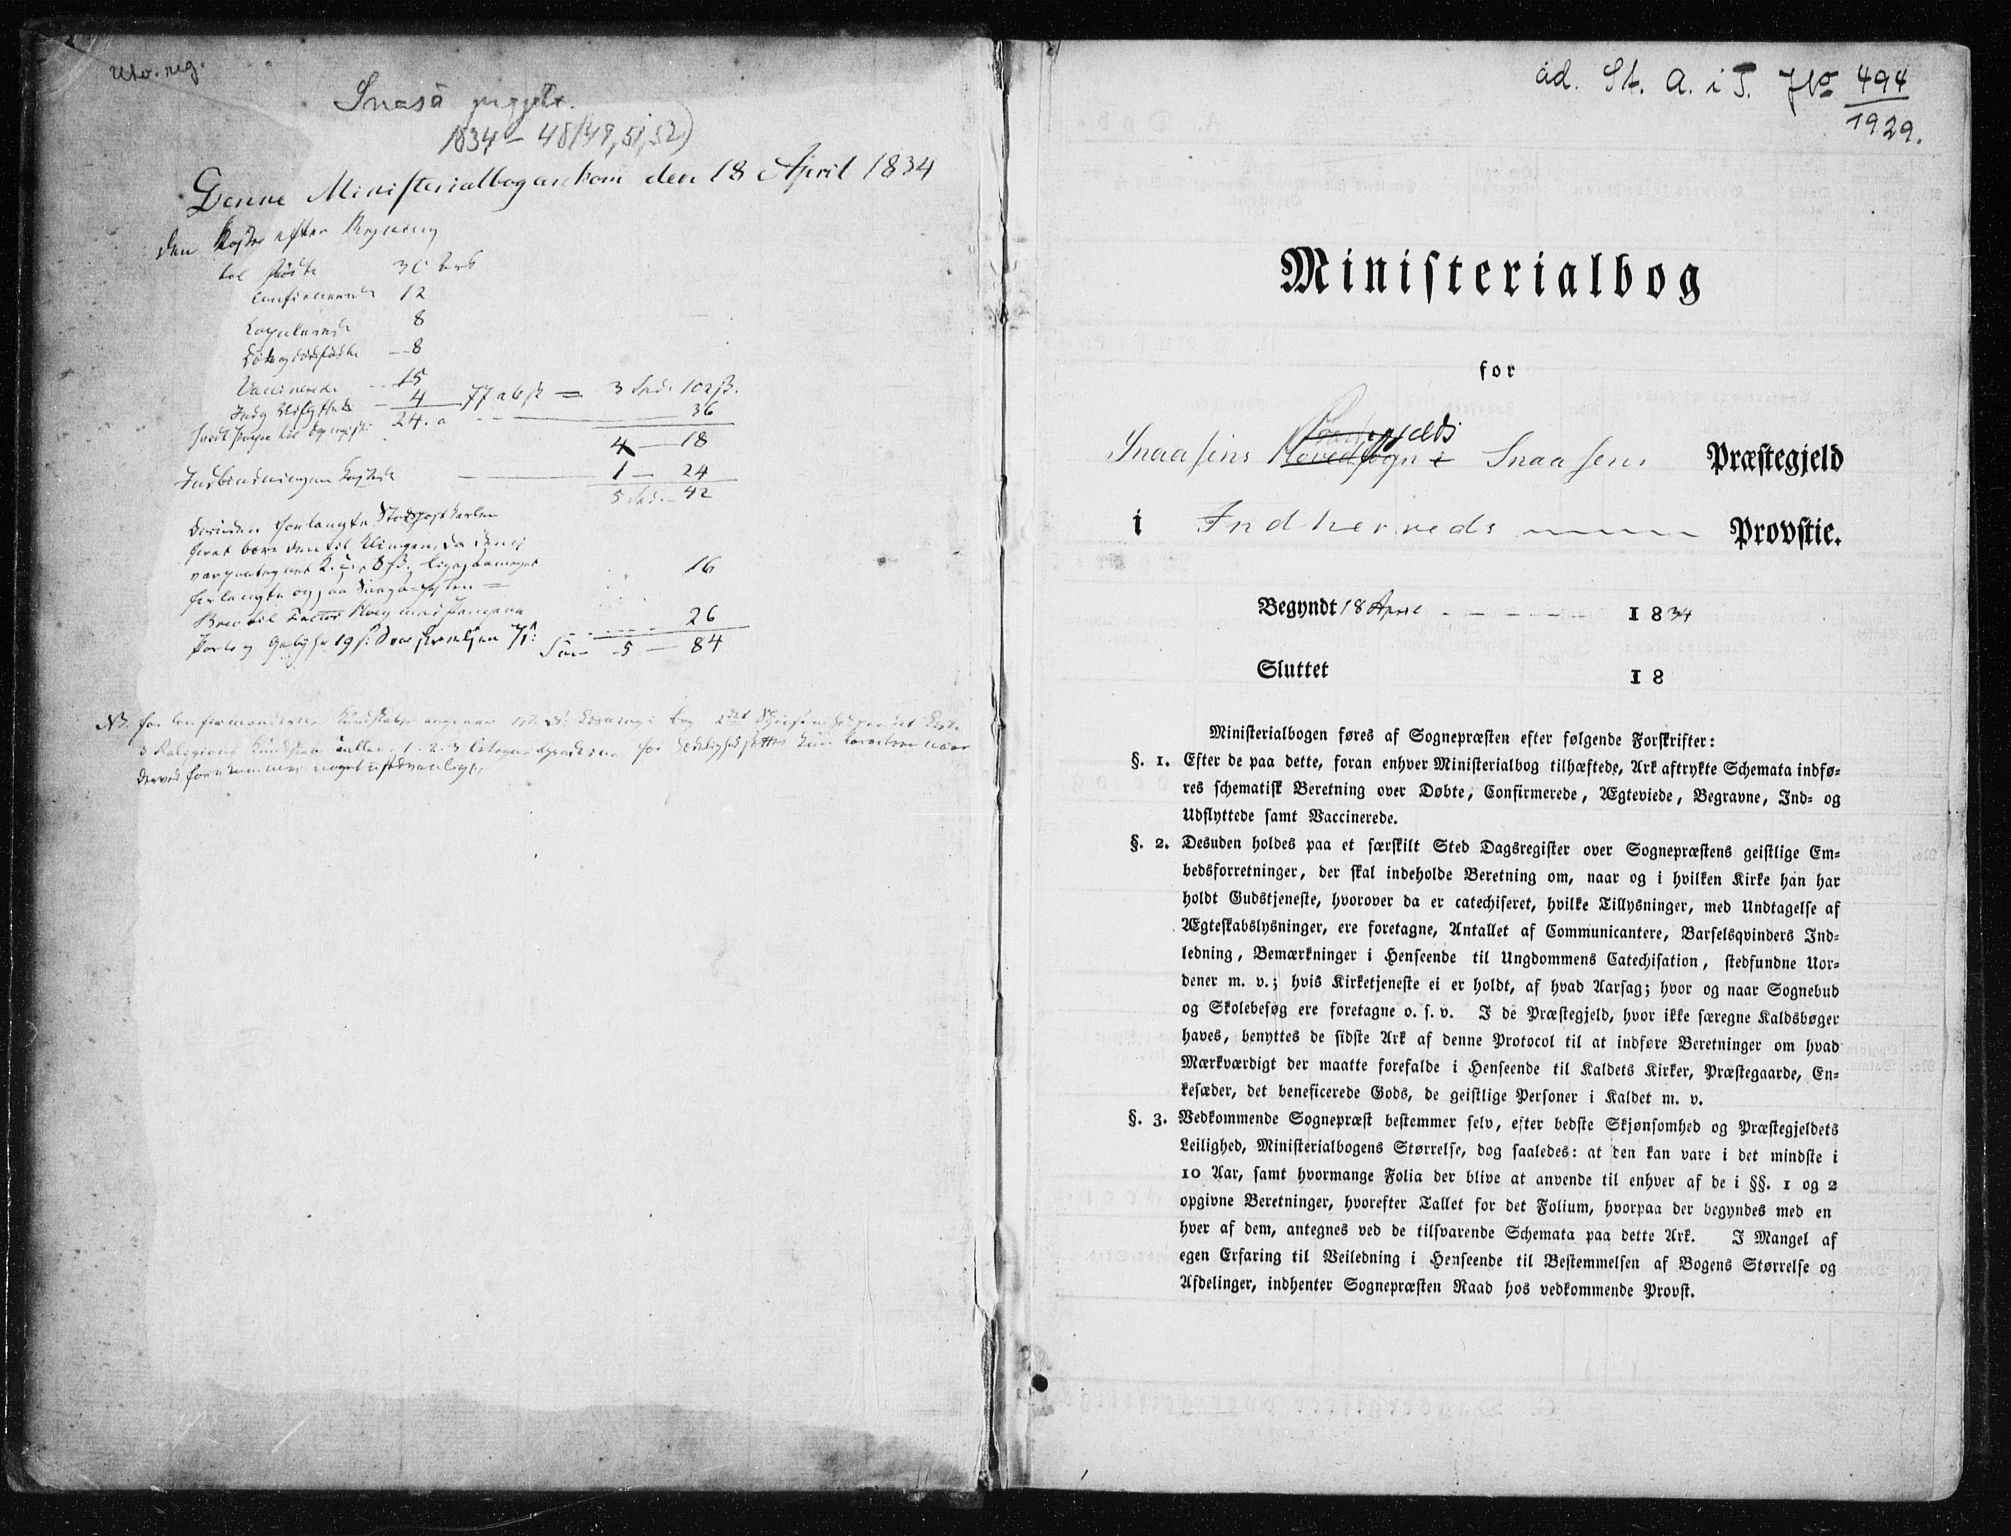 Utv. reg.
Snåsa prgjeld.
1834 - 48 (49, 51, 52)
Denne Ministerialbog ankom den 18 April 1834
den koster efter Regning
til fødte 30 Ark
Confirmerede 12
Copulerede 8
Døde og dødfødte 8
Vaccinerede 15
Ind og Udflyttede 4 77 a 6 ß = 3 Spd. 102 ß.
24. a 36
4 — 18
Indbindningen kostede 1 — 24
5 Spd. 42
forlangte
16
26
5 — 84
ad. St. A. i T. No 494
1929.
Ministerialbog
for
Snaasens Hovedsogn i Præstegjelds Snaasens Præstegjeld
i Indherreds Provstie.
Begyndt 18 April 1834
Sluttet 18
Ministerialbogen føres af Sognepræsten efter følgende Forskrifter:
§. 1. Efter de paa dette, foran enhver Ministerialbog tilhæftede, Ark aftrykte Schemata indfø=
res schematisk Beretning over Døbte, Confirmerede, Ægteviede, Begravne, Ind= og
Udflyttede samt Vaccinerede.
§. 2. Desuden holdes paa et særskilt Sted Dagsregister over Sognepræstens geistlige Em=
bedsforretninger, der skal indeholde Beretning om, naar og i hvilken Kirke han har
holdt Gudstjeneste, hvorover da er catechiseret, hvilke Tillysninger, med Undtagelse af
Ægteskabslysninger, ere foretagne, Antallet af Communicantere, Barselqvinders Ind=
ledning, Bemærkninger i Henseende til Ungdommens Catechisation, stedfundne Uor=
dener m. v.; hvis Kirketjeneste ei er holdt, af hvad Aarsag; hvor og naar Sognebud
og Skolebesøg ere foretagne o. s. v. I de Præstegjeld, hvor ikke særegne Kaldsbøger
haves, benyttes de sidste Ark af denne Protocol til at indføre Beretninger om hvad
Mærkværdigt der maatte forefalde i Henseende til Kaldets Kirker, Præstegaarde, En=
kesæder, det beneficerede Gods, de geistlige Personer i Kaldet m. v.
§. 3. Vedkommende Sognepræst bestemmer selv, efter bedste Skjønsomhed og Præstegjeldets
Leilighed, Ministerialbogens Størrelse, dog saaledes: at den kan vare i det mindste i
10 Aar, samt hvormange Folia der blive at anvende til enhver af de i §§. 1 og 2
opgivne Beretninger, hvorefter Tallet for det Folium, hvorpaa der begyndes med en
hver af dem, antegnes ved de tilsvarende Schemata paa dette Ark. I Mangel af
egen Erfaring til Veiledning i Henseende til Bestemmelsen af Bogens Størrelse og
Afdelinger, indhenter Sognepræsten Raad hos vedkommende Provst.